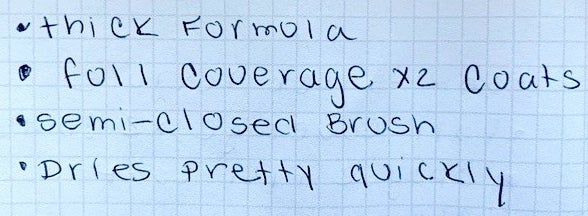 • thick Formula
• full coverage x2 coats
• semi-closed Brush
• Dries pretty quickly